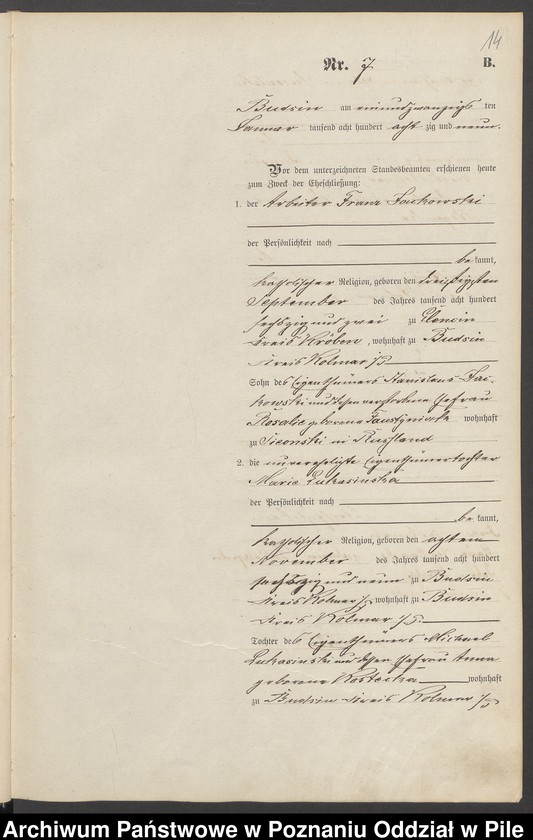 14
Nr. 7. B.
Budsin am einundzwanzigsten
Januar tausend acht hundert achtzig und neun.
Vor dem unterzeichneten Standesbeamten erschienen heute
zum Zweck der Eheschließung:
1. der Arbeiter Franz Jackowski
der Persönlichkeit nach
bekannt,
katholischer Religion, geboren den dreißigsten
September des Jahres tausend acht hundert
sechszig und zwei zu
Kreis Kröben, wohnhaft zu Budsin
Kreis Kolmar i/P.
Sohn des Eigenthümers Stanislaus Jac-
kowski und dessen verstorbene Ehefrau
Rosalie geborene wohnhaft
zu in Rußland
2. die unverehelichte Eigenthümertochter
Marie Lukasinska
der Persönlichkeit nach
bekannt,
katholischer Religion, geboren den achten
November des Jahres tausend acht hundert
sechszig und neun zu Budsin
Kreis Kolmar i/P, wohnhaft zu Budsin
Kreis Kolmar i/P.
Tochter des Eigenthümers Michael
Lukasinski und dessen Ehefrau Anna
geborene Kostecka wohnhaft
zu Budsin Kreis Kolmar i/P
Archiwum Państwowe w Poznaniu Oddział w Pile